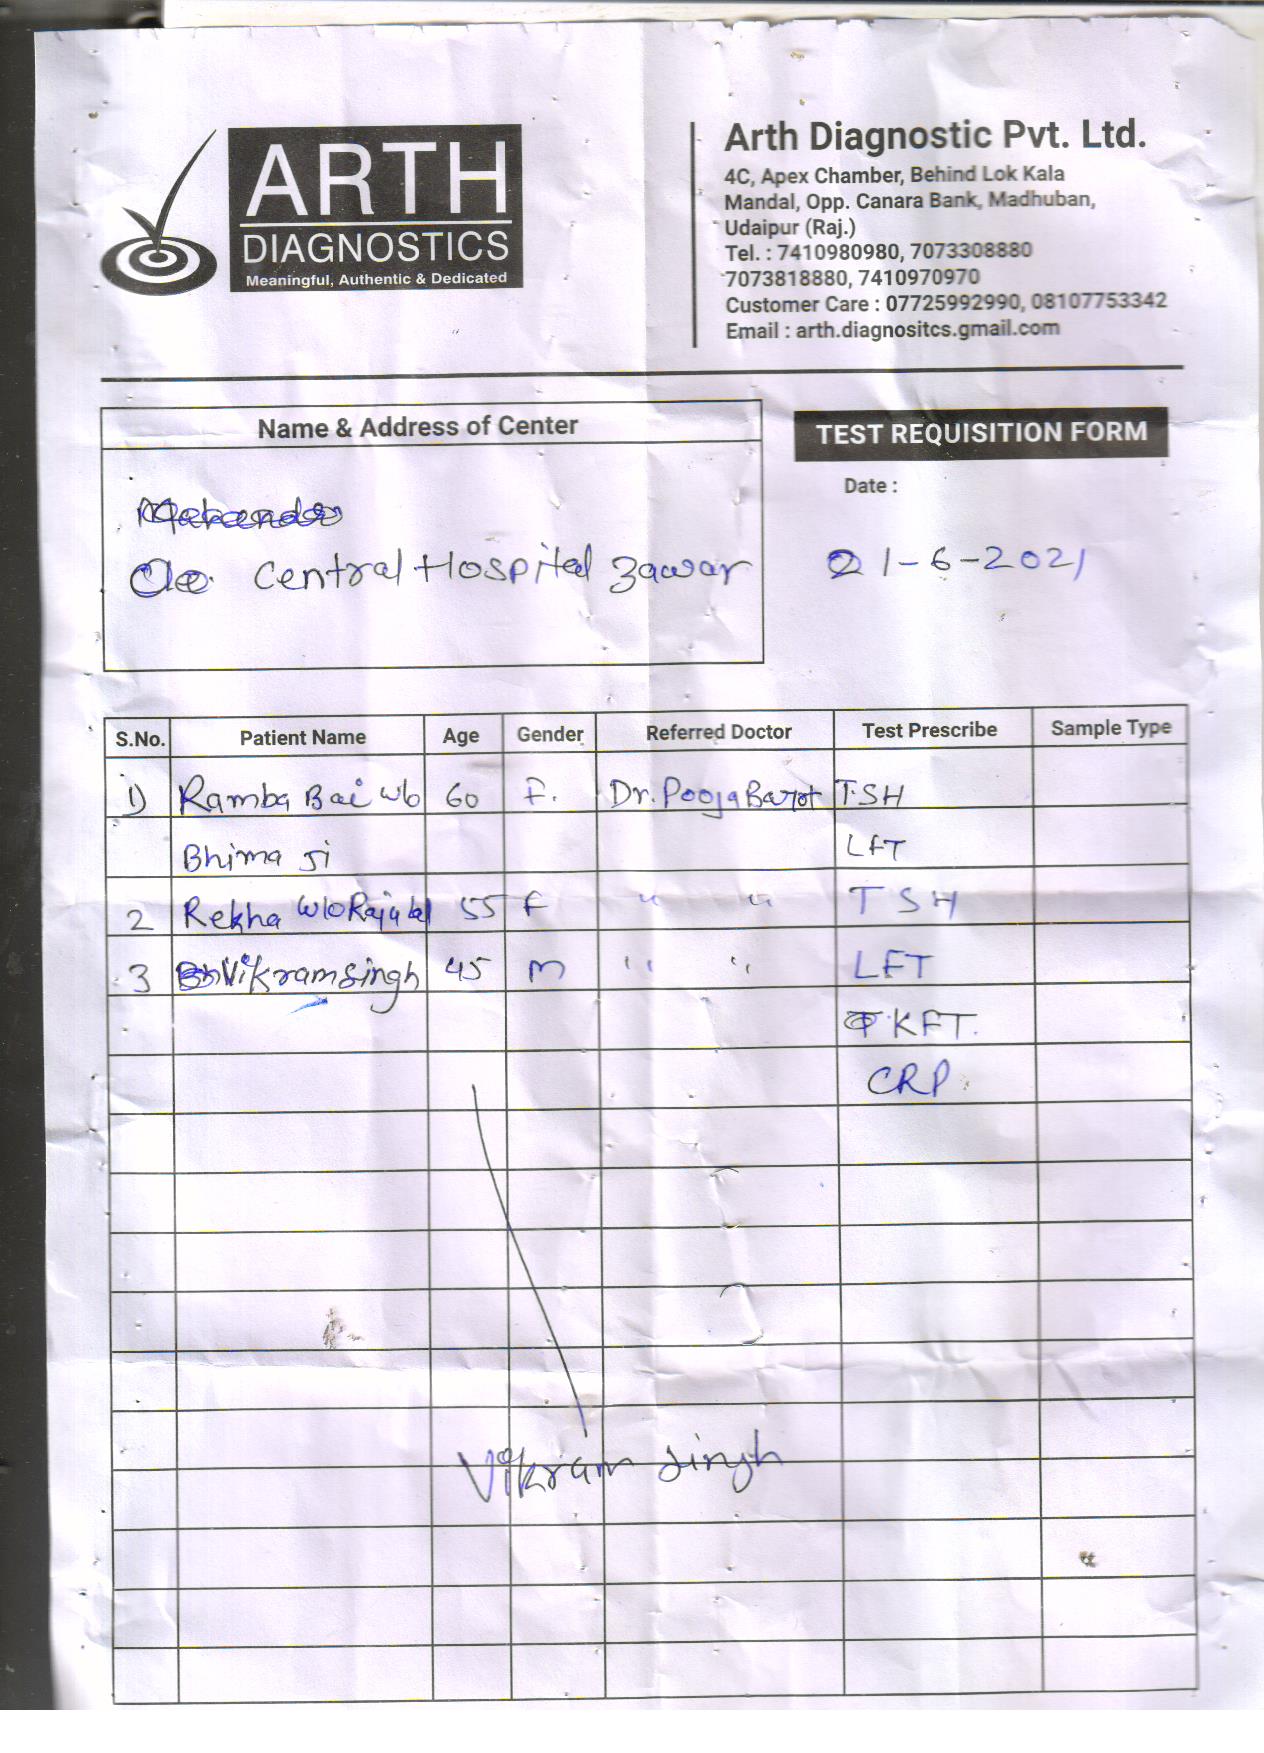 ARTH
DIAGNOSTICS
Meaningful, Authentic & Dedicated
Arth Diagnostic Pvt. Ltd.
4C, Apex Chamber, Behind Lok Kala
Mandal, Opp. Canara Bank, Madhuban,
Udaipur (Raj.)
Tel. : 7410980980, 7073308880
7073818880, 7410970970
Customer Care : 07725992990, 08107753342
Email : arth.diagnositcs.gmail.com
Name & Address of Center
TEST REQUISITION FORM
Date :
Central Hospital Zawar
21-6-2021
S.No. Patient Name Age Gender Referred Doctor Test Prescribe Sample Type
1) Ramba Bai w/o 60 F. Dr. Pooja Barot TSH
Bhima Ji LFT
2 Rekha w/o Rajulal 55 F " " TSH
3 Vikram Singh 45 m " " LFT
KFT.
CRP
Vikram Singh